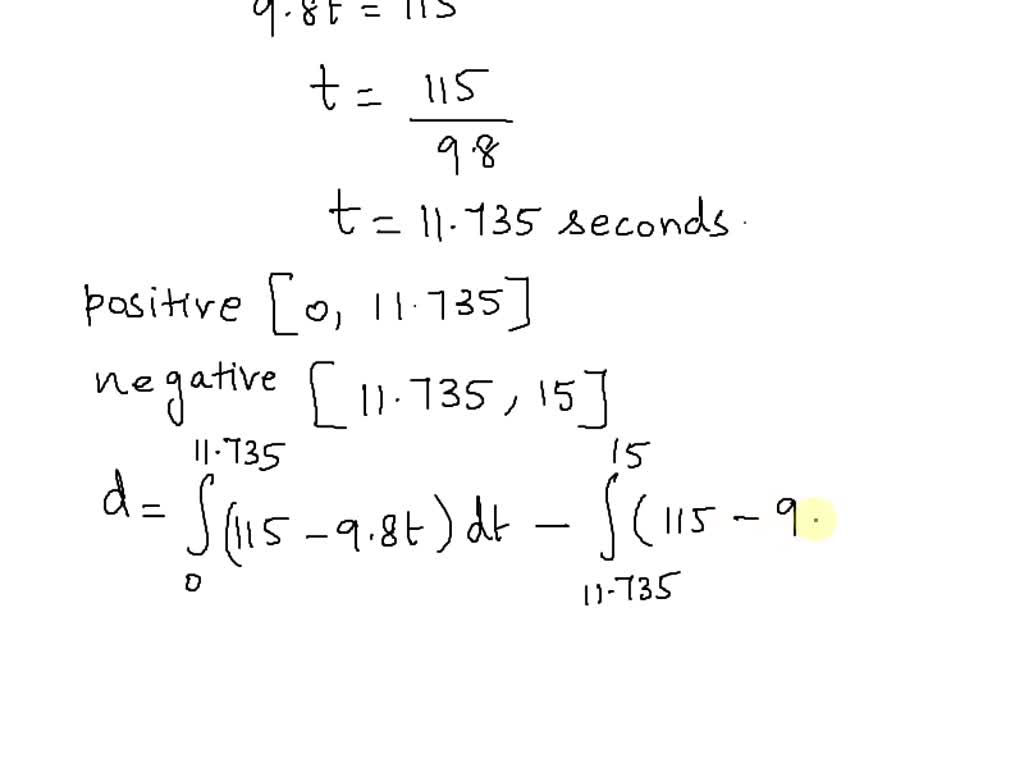 9.8t = 115
t = 115
9.8
t = 11.735 seconds.
positive [0, 11.735]
negative [11.735, 15]
d = ∫₀^11.735 (115 - 9.8t) dt - ∫_11.735^15 (115 - 9.